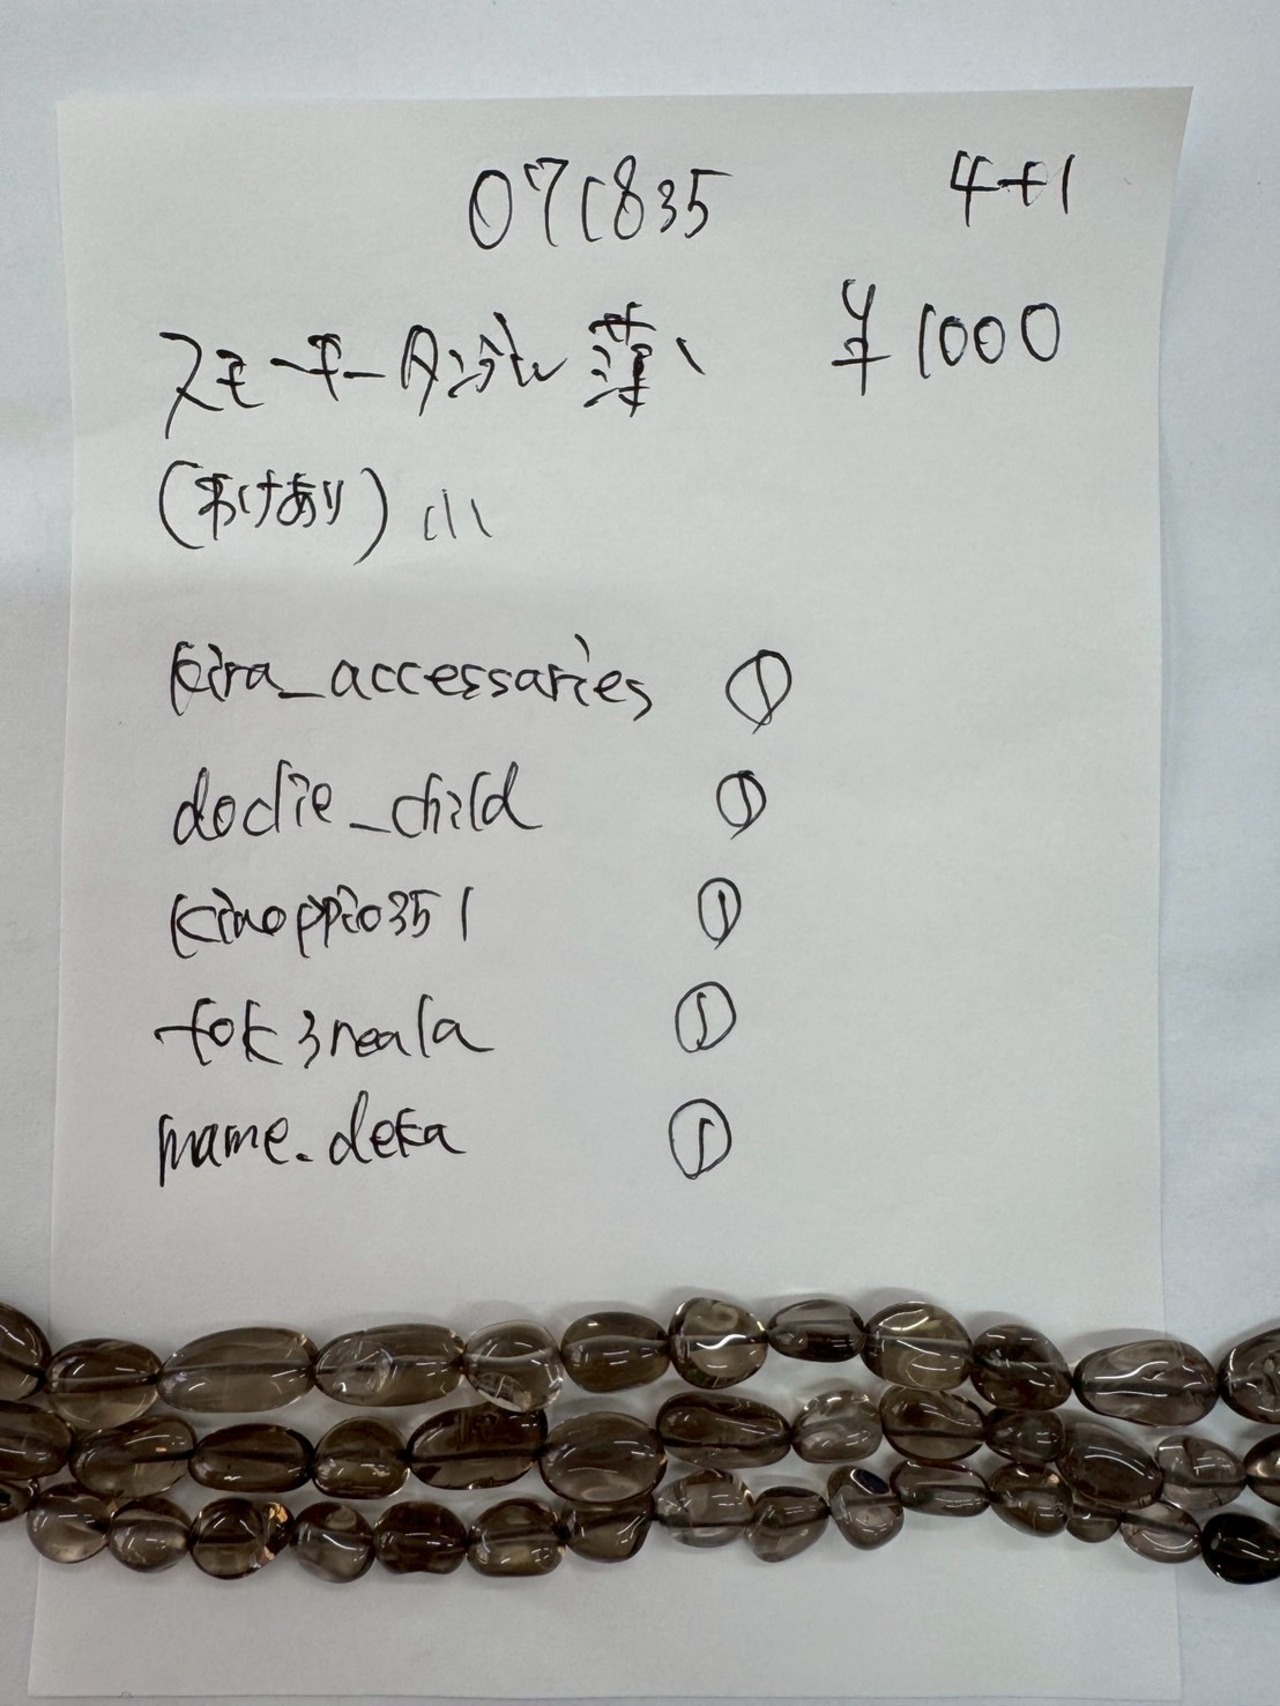 071835 4+1
スモーキータンブル 薄い ¥1000
(わけあり) 小
kira_accessaries ①
doclie_child ①
kinoppio351 ①
tok3neala ①
mame.deka ①